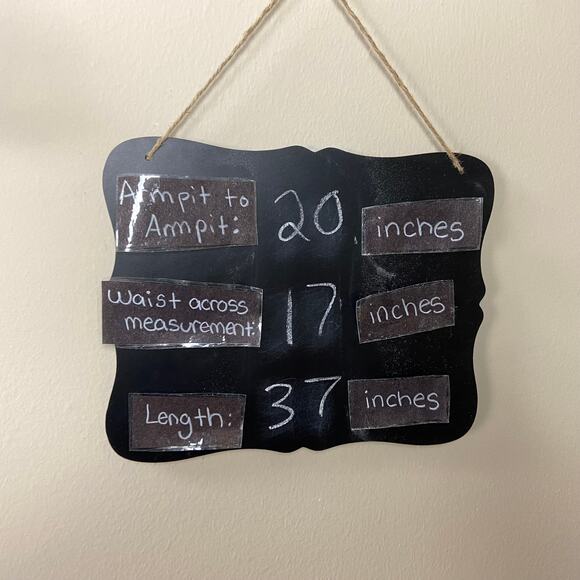 Armpit to
Armpit: 20 inches
Waist across
measurement: 17 inches
Length: 37 inches